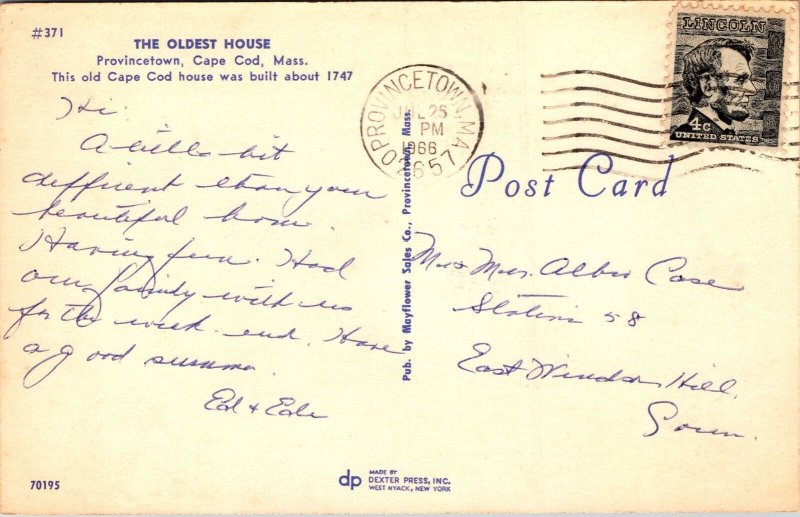 #371
THE OLDEST HOUSE
Provincetown, Cape Cod, Mass.
This old Cape Cod house was built about 1747
Hi
A bit
different than your
beautiful home.
Having fun. Had
our family with us
for the week-end. Have
a good summer.
Ed &
PROVINCETOWN, MA
JUL 25
PM
1966
02657
LINCOLN
4c
UNITED STATES
Post Card
Pub. by Mayflower Sales Co., Provincetown, Mass.
Mr & Mrs. Case
Station 58
East Windsor Hill.
Conn.
70195
dp
MADE BY
DEXTER PRESS, INC.
WEST NYACK, NEW YORK